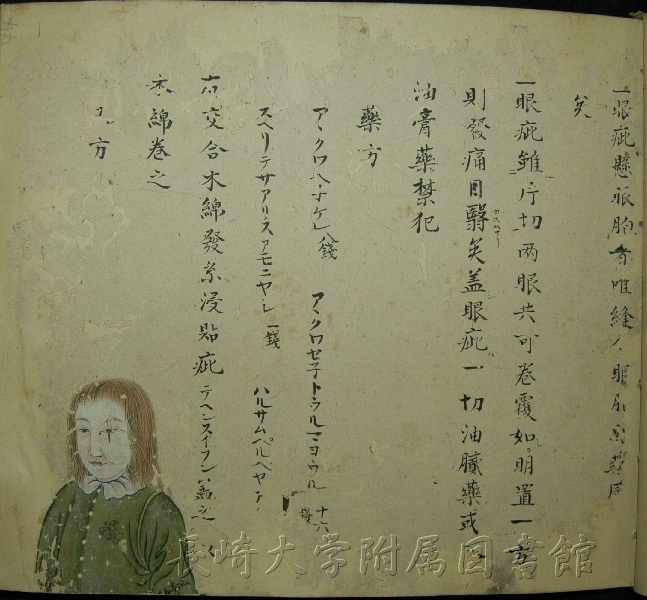 一眼疵懸眼胞者唯縫
矣
一眼疵雖片切両眼共可巻覆如明置一方
則發痛目翳矣盖眼疵一切油膩藥或
カスムナリ
油膏藥禁犯
藥方
アヽクワハナケレ 八錢 アヽクワセ子トウルマヨウル 十六錢
スヘリテサアリスアモニヤシ 一錢 ハルサムペルヘヤナ
右交合木綿發糸浸貼疵 テヘンスイフン盖之
木綿巻之
方
長崎大学附属図書館